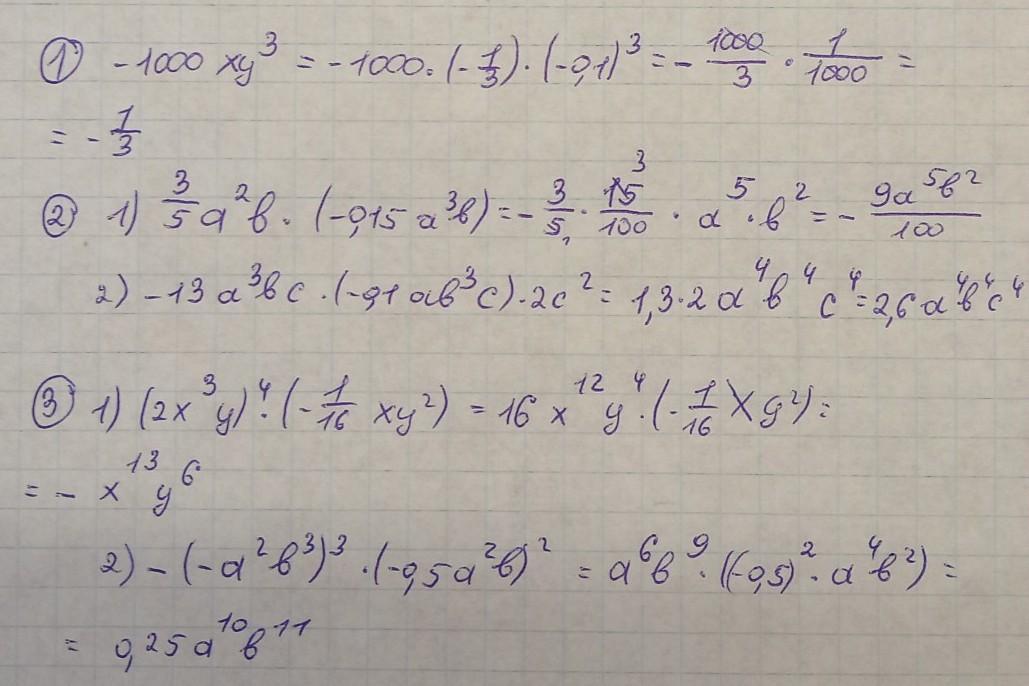 ① -1000 xy³ = -1000 · (-1/3) · (-0,1)³ = - 1000/3 · 1/1000 =
= - 1/3
② 1) 3/5 a²b · (-0,15 a³b) = - 3/5 · 15/100 3 · a⁵ · b² = - 9a⁵b²/100
2) -13 a³bc · (-0,1 ab³c) · 2c² = 1,3·2 a⁴b⁴c⁴ = 2,6a⁴b⁴c⁴
③ 1) (2x³y)⁴ · (-1/16 xy²) = 16 x¹²y⁴ · (-1/16 xy²) =
= - x¹³y⁶
2) - (-a²b³)³ · (-0,5a²b)² = a⁶b⁹ · ((-0,5)² · a⁴b²) =
= 0,25a¹⁰b¹¹